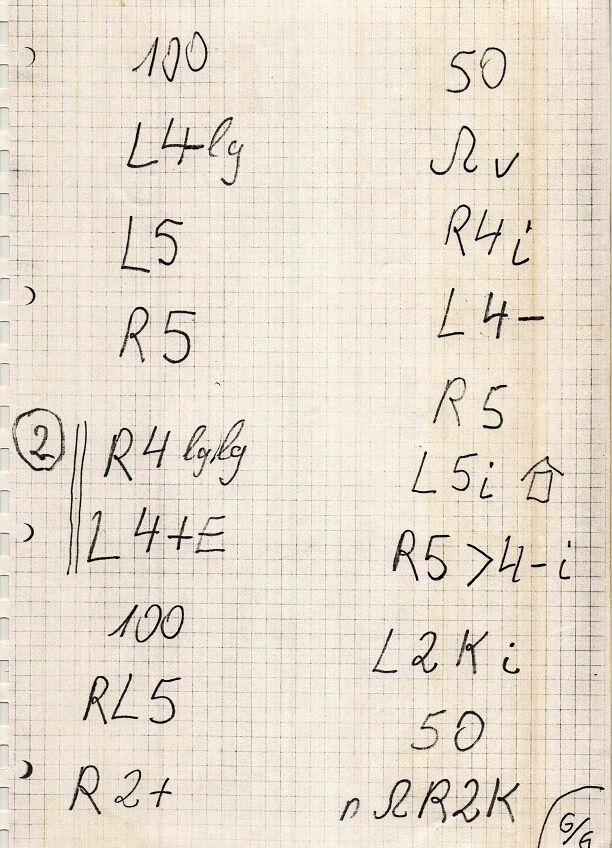 100
L4-lg
L5
R5
2
R4 lg/lg
L4+E
100
RL5
R2+
50
Ω v
R4i
L4-
R5
L5i
R5>4-i
L2Ki
50
n Ω R2K
G/G